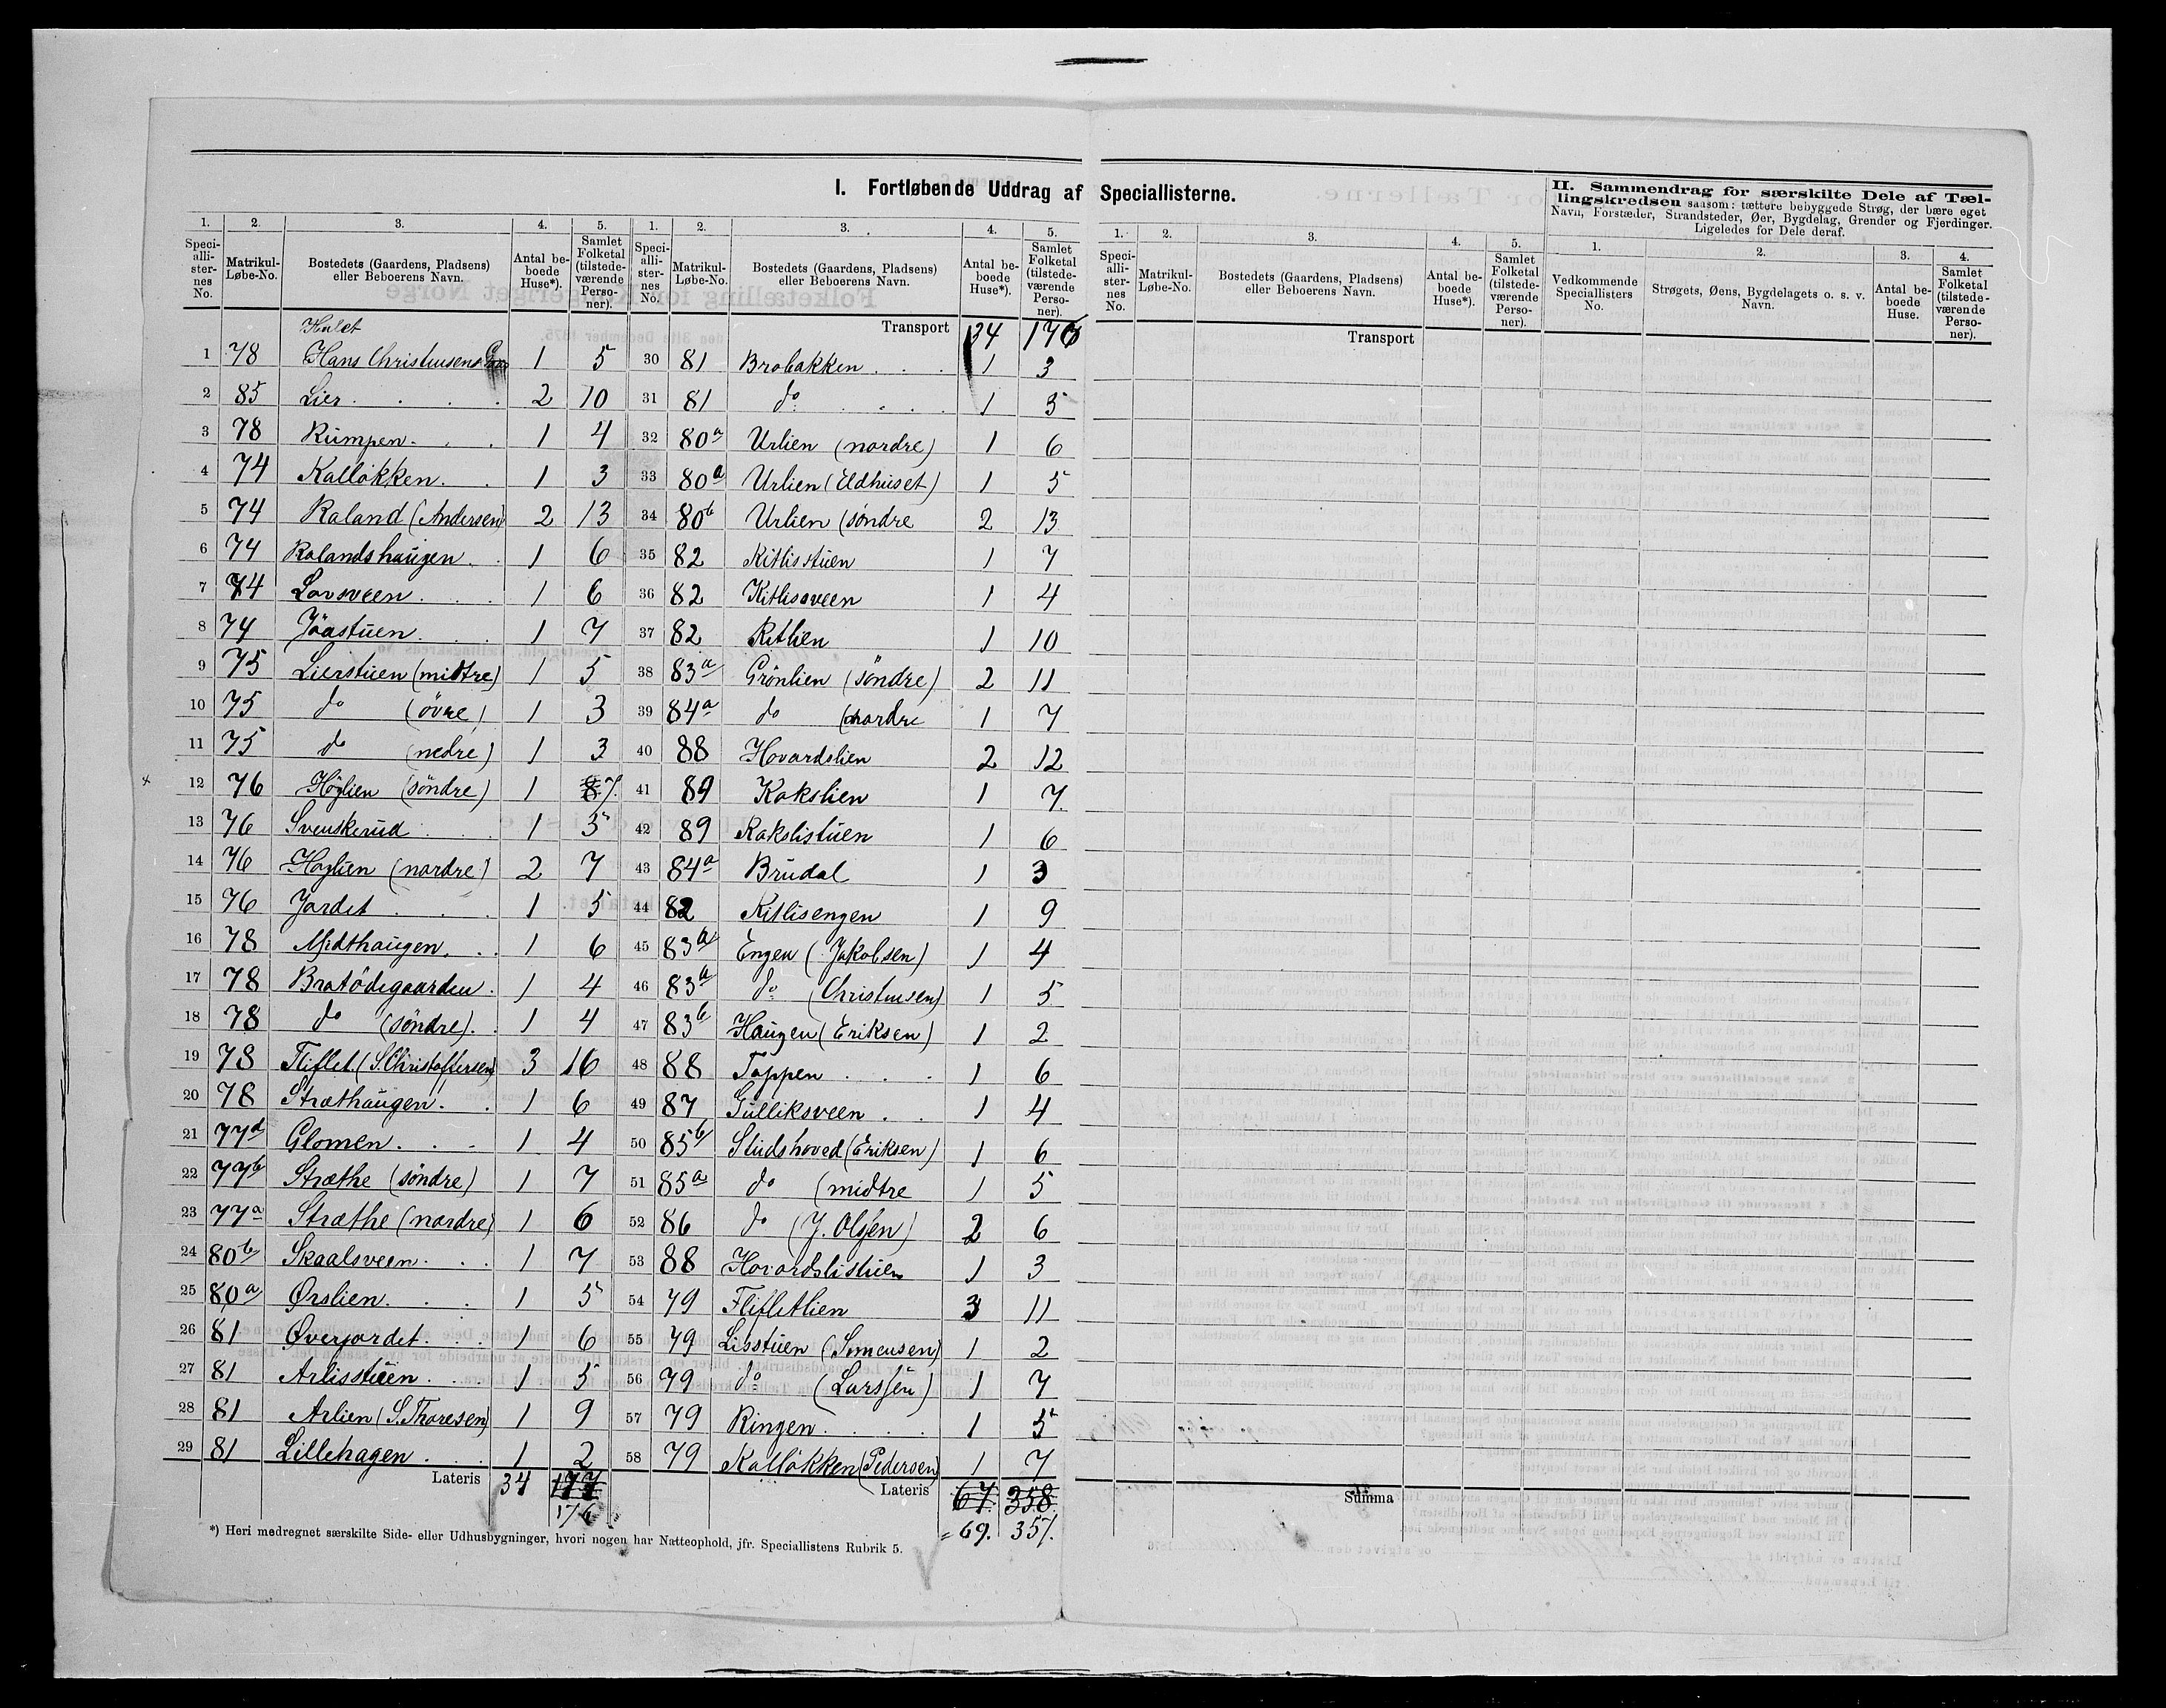 I. Fortløbende Uddrag af Speciallisterne.
1. 2. 3. 4. 5.
Speci-alli-ster-nes No. Matrikul-Løbe-No. Bostedets (Gaardens, Pladsens) eller Beboerens Navn. Antal be-boede Huse*). Samlet Folketal (tilstede-værende Perso-ner).
Halet
1 78 Hans Christensens 1 5
2 85 Lier 2 10
3 78 Rumpen 1 4
4 74 Kalløkken 1 3
5 74 Raland (Andersen) 2 13
6 74 Ralandshaugen 1 6
7 74 Lovsveen 1 6
8 74 Jöastuen 1 7
9 75 Lierstuen (midtre) 1 5
10 75 do (övre) 1 3
11 75 do (nedre) 1 3
12 76 Höglien (söndre) 1 8 7.
13 76 Svenskerud 1 5
14 76 Höglien (nordre) 2 7
15 76 Jordet 1 5
16 78 Midthaugen 1 6
17 78 Bratödegaarden 1 4
18 78 do (söndre) 1 4
19 78 Fliflet (S. Christoffersen) 3 16
20 78 Stræthaugen 1 6
21 77d Glomen 1 4
22 77b Stræthe (söndre) 1 7
23 77a Stræthe (nordre) 1 6
24 80b Skaalsveen 1 7
25 80a Ørslien 1 5
26 81 Øverjordet 1 6
27 81 Arlisstuen 1 5
28 81 Arlien (S. Thoresen) 1 9
29 81 Lillehagen 1 2
Lateris 34 177
176
1. 2. 3. 4. 5.
Speci-alli-ster-nes No. Matrikul-Løbe-No. Bostedets (Gaardens, Pladsens) eller Beboerens Navn. Antal be-boede Huse*). Samlet Folketal (tilstede-værende Perso-ner).
Transport 34 176
30 81 Brobakken 1 3
31 81 do 1 5
32 80a Urlien (nordre) 1 6
33 80a Urlien (Eldhuset) 1 5
34 80b Urlien (söndre 2 13
35 82 Kitlisstuen 1 7
36 82 Kitlisveen 1 4
37 82 Kitlien 1 10
38 83a Grönlien (söndre) 2 11
39 84a do (nordre 1 7
40 88 Hovardslien 2 12
41 89 Kakslien 1 7.
42 89 Kakslistuen 1 6
43 84a Brudal 1 3
44 82 Kitlisengen 1 9
45 83a Engen (Jakobsen) 1 4
46 83a do (Christensen) 1 5
47 83b Haugen (Eriksen) 1 2
48 88 Toppen 1 6
49 87 Gulliksveen 1 4
50 85b Studshoved (Eriksen) 1 6
51 85a do (midtre 1 5
52 86 do (J. Olsen) 2 6
53 88 Hovardslistuen 1 3
54 79 Flifletlien 3 11
55 79 Lisstuen (Simensen) 1 2
56 79 do (Larssen) 1 7
57 79 Ringen 1 5
58 79 Kalløkken (Pedersen) 1 7
Lateris 67. 358
69. 357.
*) Heri medregnet særskilte Side- eller Udhusbygninger, hvori nogen har Natteophold, jfr. Speciallistens Rubrik 5.
1. 2. 3. 4. 5.
Speci-alli-ster-nes No. Matrikul-Løbe-No. Bostedets (Gaardens, Pladsens) eller Beboerens Navn. Antal be-boede Huse*). Samlet Folketal (tilstede-værende Perso-ner).
Transport
Summa
II. Sammendrag for særskilte Dele af Tæl-
lingskredsen saasom: tættere bebyggede Strøg, der bære eget
Navn, Forstæder, Strandsteder, Øer, Bygdelag, Grender og Fjerdinger.
Ligeledes for Dele deraf.
1. 2. 3. 4.
Vedkommende Speciallisters No. Strøgets, Øens, Bygdelagets o. s. v. Navn. Antal be-boede Huse. Samlet Folketal (tilstede-værende Perso-ner).